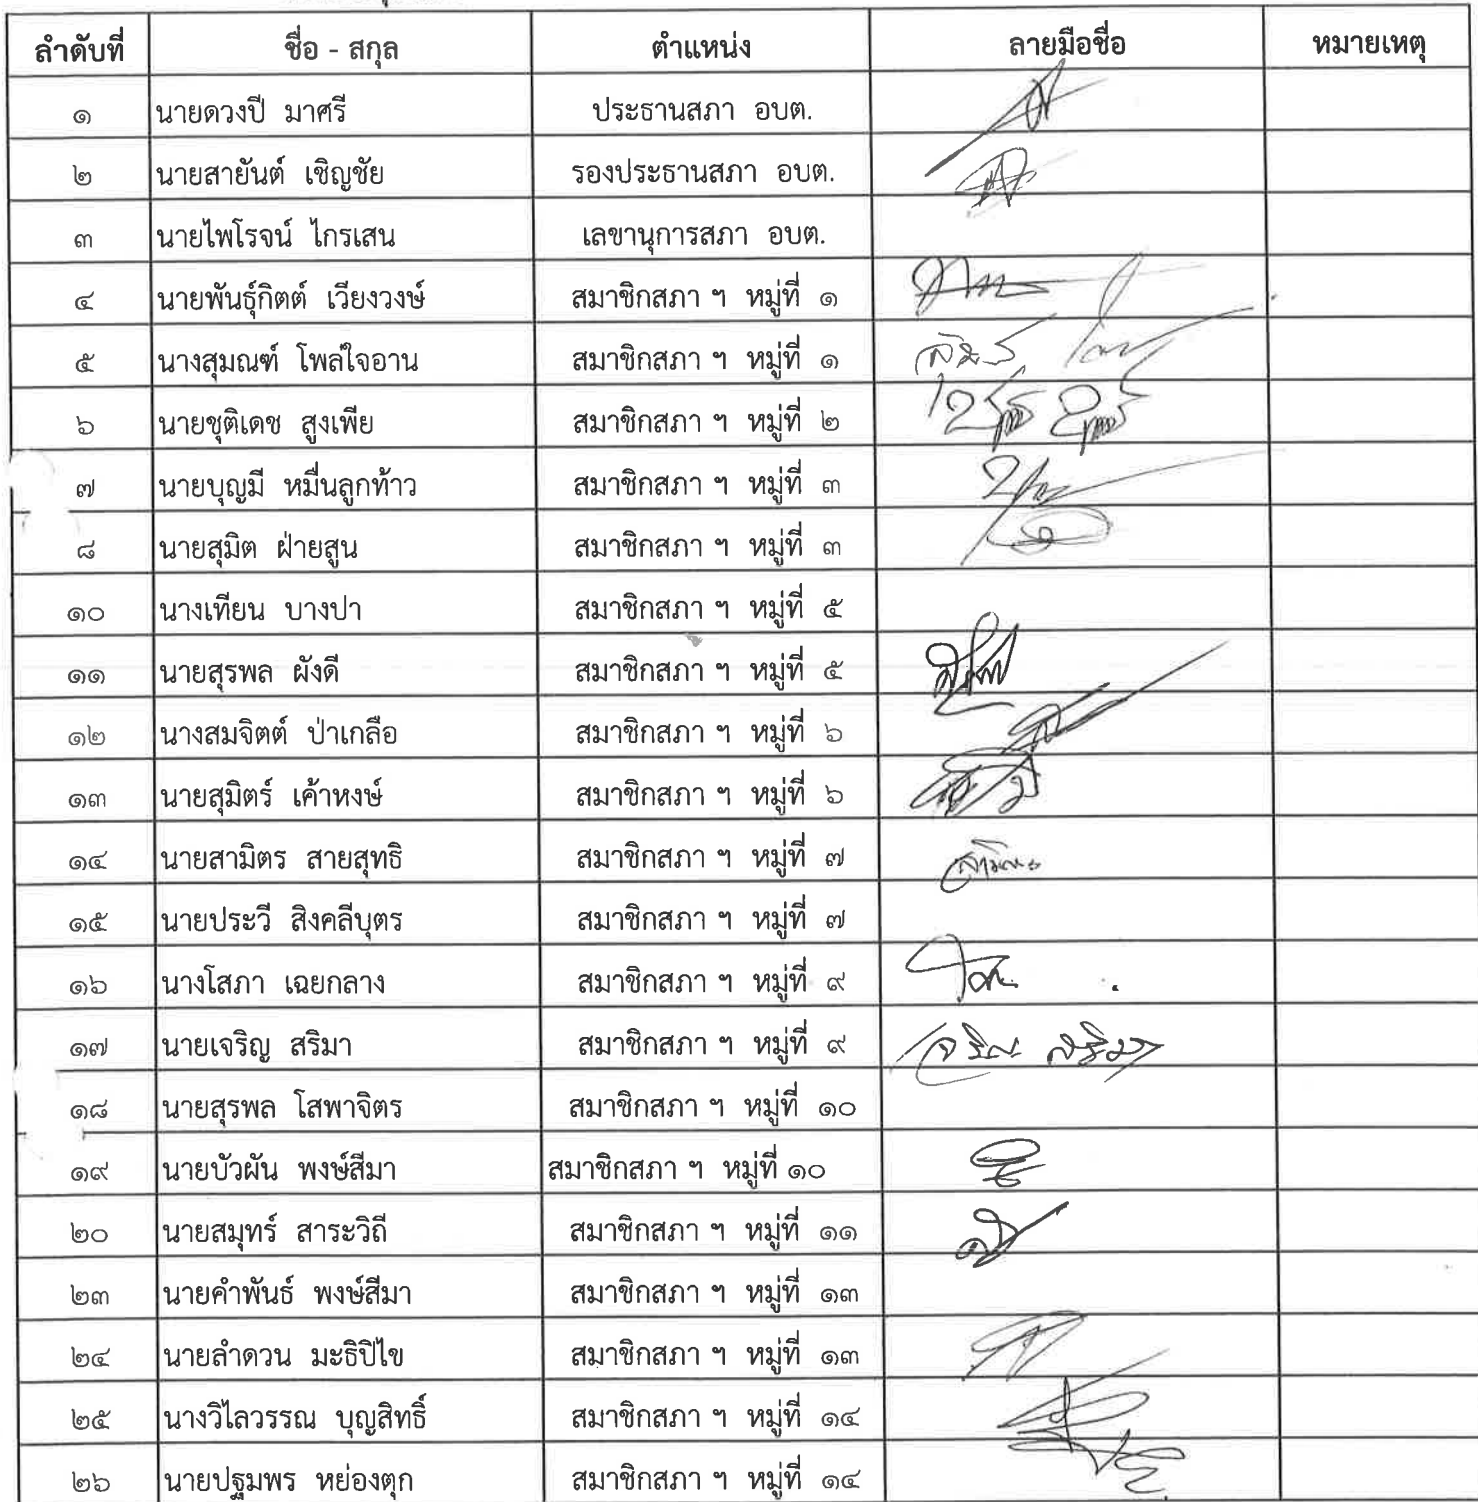 ลำดับที่ ชื่อ - สกุล ตำแหน่ง ลายมือชื่อ หมายเหตุ
๑ นายดวงปี มาศรี ประธานสภา อบต.
๒ นายสายันต์ เชิญชัย รองประธานสภา อบต.
๓ นายไพโรจน์ ไกรเสน เลขานุการสภา อบต.
๔ นายพันธุ์กิตต์ เวียงวงษ์ สมาชิกสภา ฯ หมู่ที่ ๑
๕ นางสุมณฑ์ โพล่ใจอาน สมาชิกสภา ฯ หมู่ที่ ๑
๖ นายชุติเดช สูงเพีย สมาชิกสภา ฯ หมู่ที่ ๒
๗ นายบุญมี หมื่นลูกท้าว สมาชิกสภา ฯ หมู่ที่ ๓
๘ นายสุมิต ฝ่ายสูน สมาชิกสภา ฯ หมู่ที่ ๓
๑๐ นางเทียน บางปา สมาชิกสภา ฯ หมู่ที่ ๕
๑๑ นายสุรพล ผังดี สมาชิกสภา ฯ หมู่ที่ ๕
๑๒ นางสมจิตต์ ป่าเกลือ สมาชิกสภา ฯ หมู่ที่ ๖
๑๓ นายสุมิตร์ เค้าหงษ์ สมาชิกสภา ฯ หมู่ที่ ๖
๑๔ นายสามิตร สายสุทธิ สมาชิกสภา ฯ หมู่ที่ ๗
๑๕ นายประวี สิงคลีบุตร สมาชิกสภา ฯ หมู่ที่ ๗
๑๖ นางโสภา เฉยกลาง สมาชิกสภา ฯ หมู่ที่ ๙
๑๗ นายเจริญ สริมา สมาชิกสภา ฯ หมู่ที่ ๙ เจริญ สริมา
๑๘ นายสุรพล โสพาจิตร สมาชิกสภา ฯ หมู่ที่ ๑๐
๑๙ นายบัวผัน พงษ์สีมา สมาชิกสภา ฯ หมู่ที่ ๑๐
๒๐ นายสมุทร์ สาระวิถี สมาชิกสภา ฯ หมู่ที่ ๑๑
๒๓ นายคำพันธ์ พงษ์สีมา สมาชิกสภา ฯ หมู่ที่ ๑๓
๒๔ นายลำดวน มะธิปิไข สมาชิกสภา ฯ หมู่ที่ ๑๓
๒๕ นางวิไลวรรณ บุญสิทธิ์ สมาชิกสภา ฯ หมู่ที่ ๑๔
๒๖ นายปฐมพร หย่องตุก สมาชิกสภา ฯ หมู่ที่ ๑๔